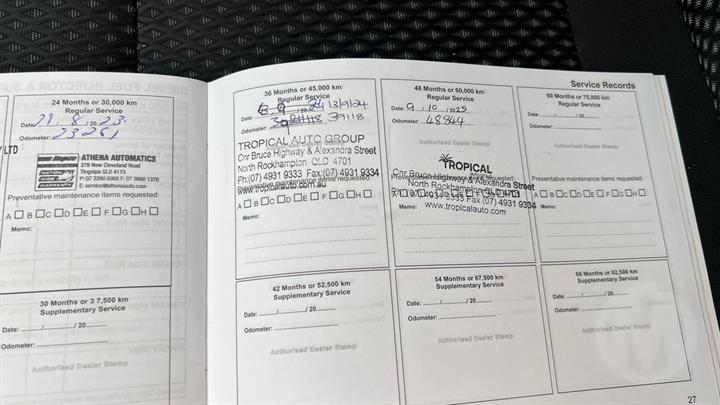 Service Records
24 Months or 30,000 km
Regular Service
Date: 29. 8. 2023
Odometer: 23261
LTD
Repco
ATHENA AUTOMATICS
278 New Cleveland Road
Tingalpa QLD 4173
E: service@athenaauto.com
Preventative maintenance items requested:
A B C D E F G H
Memo:
30 Months or 3 7,500 km
Supplementary Service
Date: ......./......./ 20.......
Odometer:
Authorised Dealer Stamp
36 Months or 45,000 km
Regular Service
Date: 13/9/24
Odometer: 39118
TROPICAL AUTO GROUP
Cnr Bruce Highway & Alexandra Street
North Rockhampton QLD 4701
Ph:(07) 4931 9333 Fax:(07) 4931 9334
Preventative maintenance items requested:
www.tropicalauto.com.au
A B C D E F G H
Memo:
42 Months or 52,500 km
Supplementary Service
Date: ......./......./ 20.......
Odometer:
Authorised Dealer Stamp
48 Months or 60,000 km
Regular Service
Date: 9. 10. 2025
Odometer: 48944
Authorised Dealer Stamp
TROPICAL
Preventative maintenance items requested:
Cnr Bruce Highway & Alexandra Street
North Rockhampton QLD 4701
(07) 4931 9333 Fax (07) 4931 9334
www.tropicalauto.com
Memo:
54 Months or 67,500 km
Supplementary Service
Date: ......./......./ 20.......
Odometer:
Authorised Dealer Stamp
60 Months or 75,000 km
Regular Service
Date: ......./......./ 20.......
Odometer:
Authorised Dealer Stamp
Preventative maintenance items requested:
A B C D E F G H
Memo:
66 Months or 82,500 km
Supplementary Service
Date: ......./......./ 20.......
Odometer:
Authorised Dealer Stamp
27